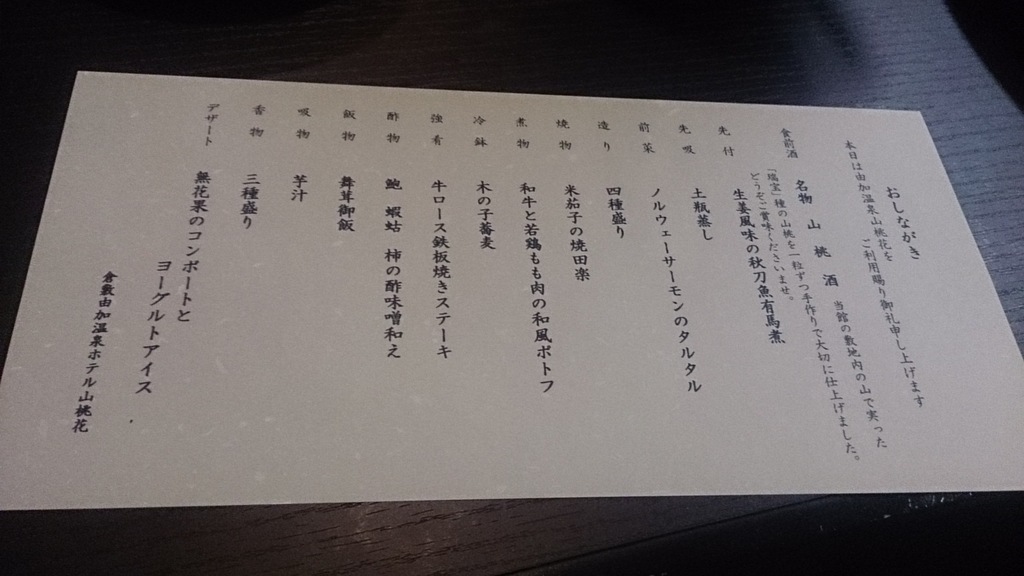 おしながき
本日は由加温泉山桃花を
ご利用賜り御礼申し上げます
食前酒 名物 山桃酒 当館の敷地内の山で実った
「瑞宝」種の山桃を一粒ずつ手作りで大切に仕上げました。
どうぞご賞味くださいませ。
先付 生姜風味の秋刀魚有馬煮
先吸 土瓶蒸し
前菜 ノルウェーサーモンのタルタル
造り 四種盛り
焼物 米茄子の焼田楽
煮物 和牛と若鶏もも肉の和風ポトフ
冷鉢 木の子蕎麦
強肴 牛ロース鉄板焼きステーキ
酢物 鮑 蝦蛄 柿の酢味噌和え
飯物 舞茸御飯
吸物 芋汁
香物 三種盛り
デザート 無花果のコンポートと
ヨーグルトアイス
倉敷由加温泉ホテル山桃花